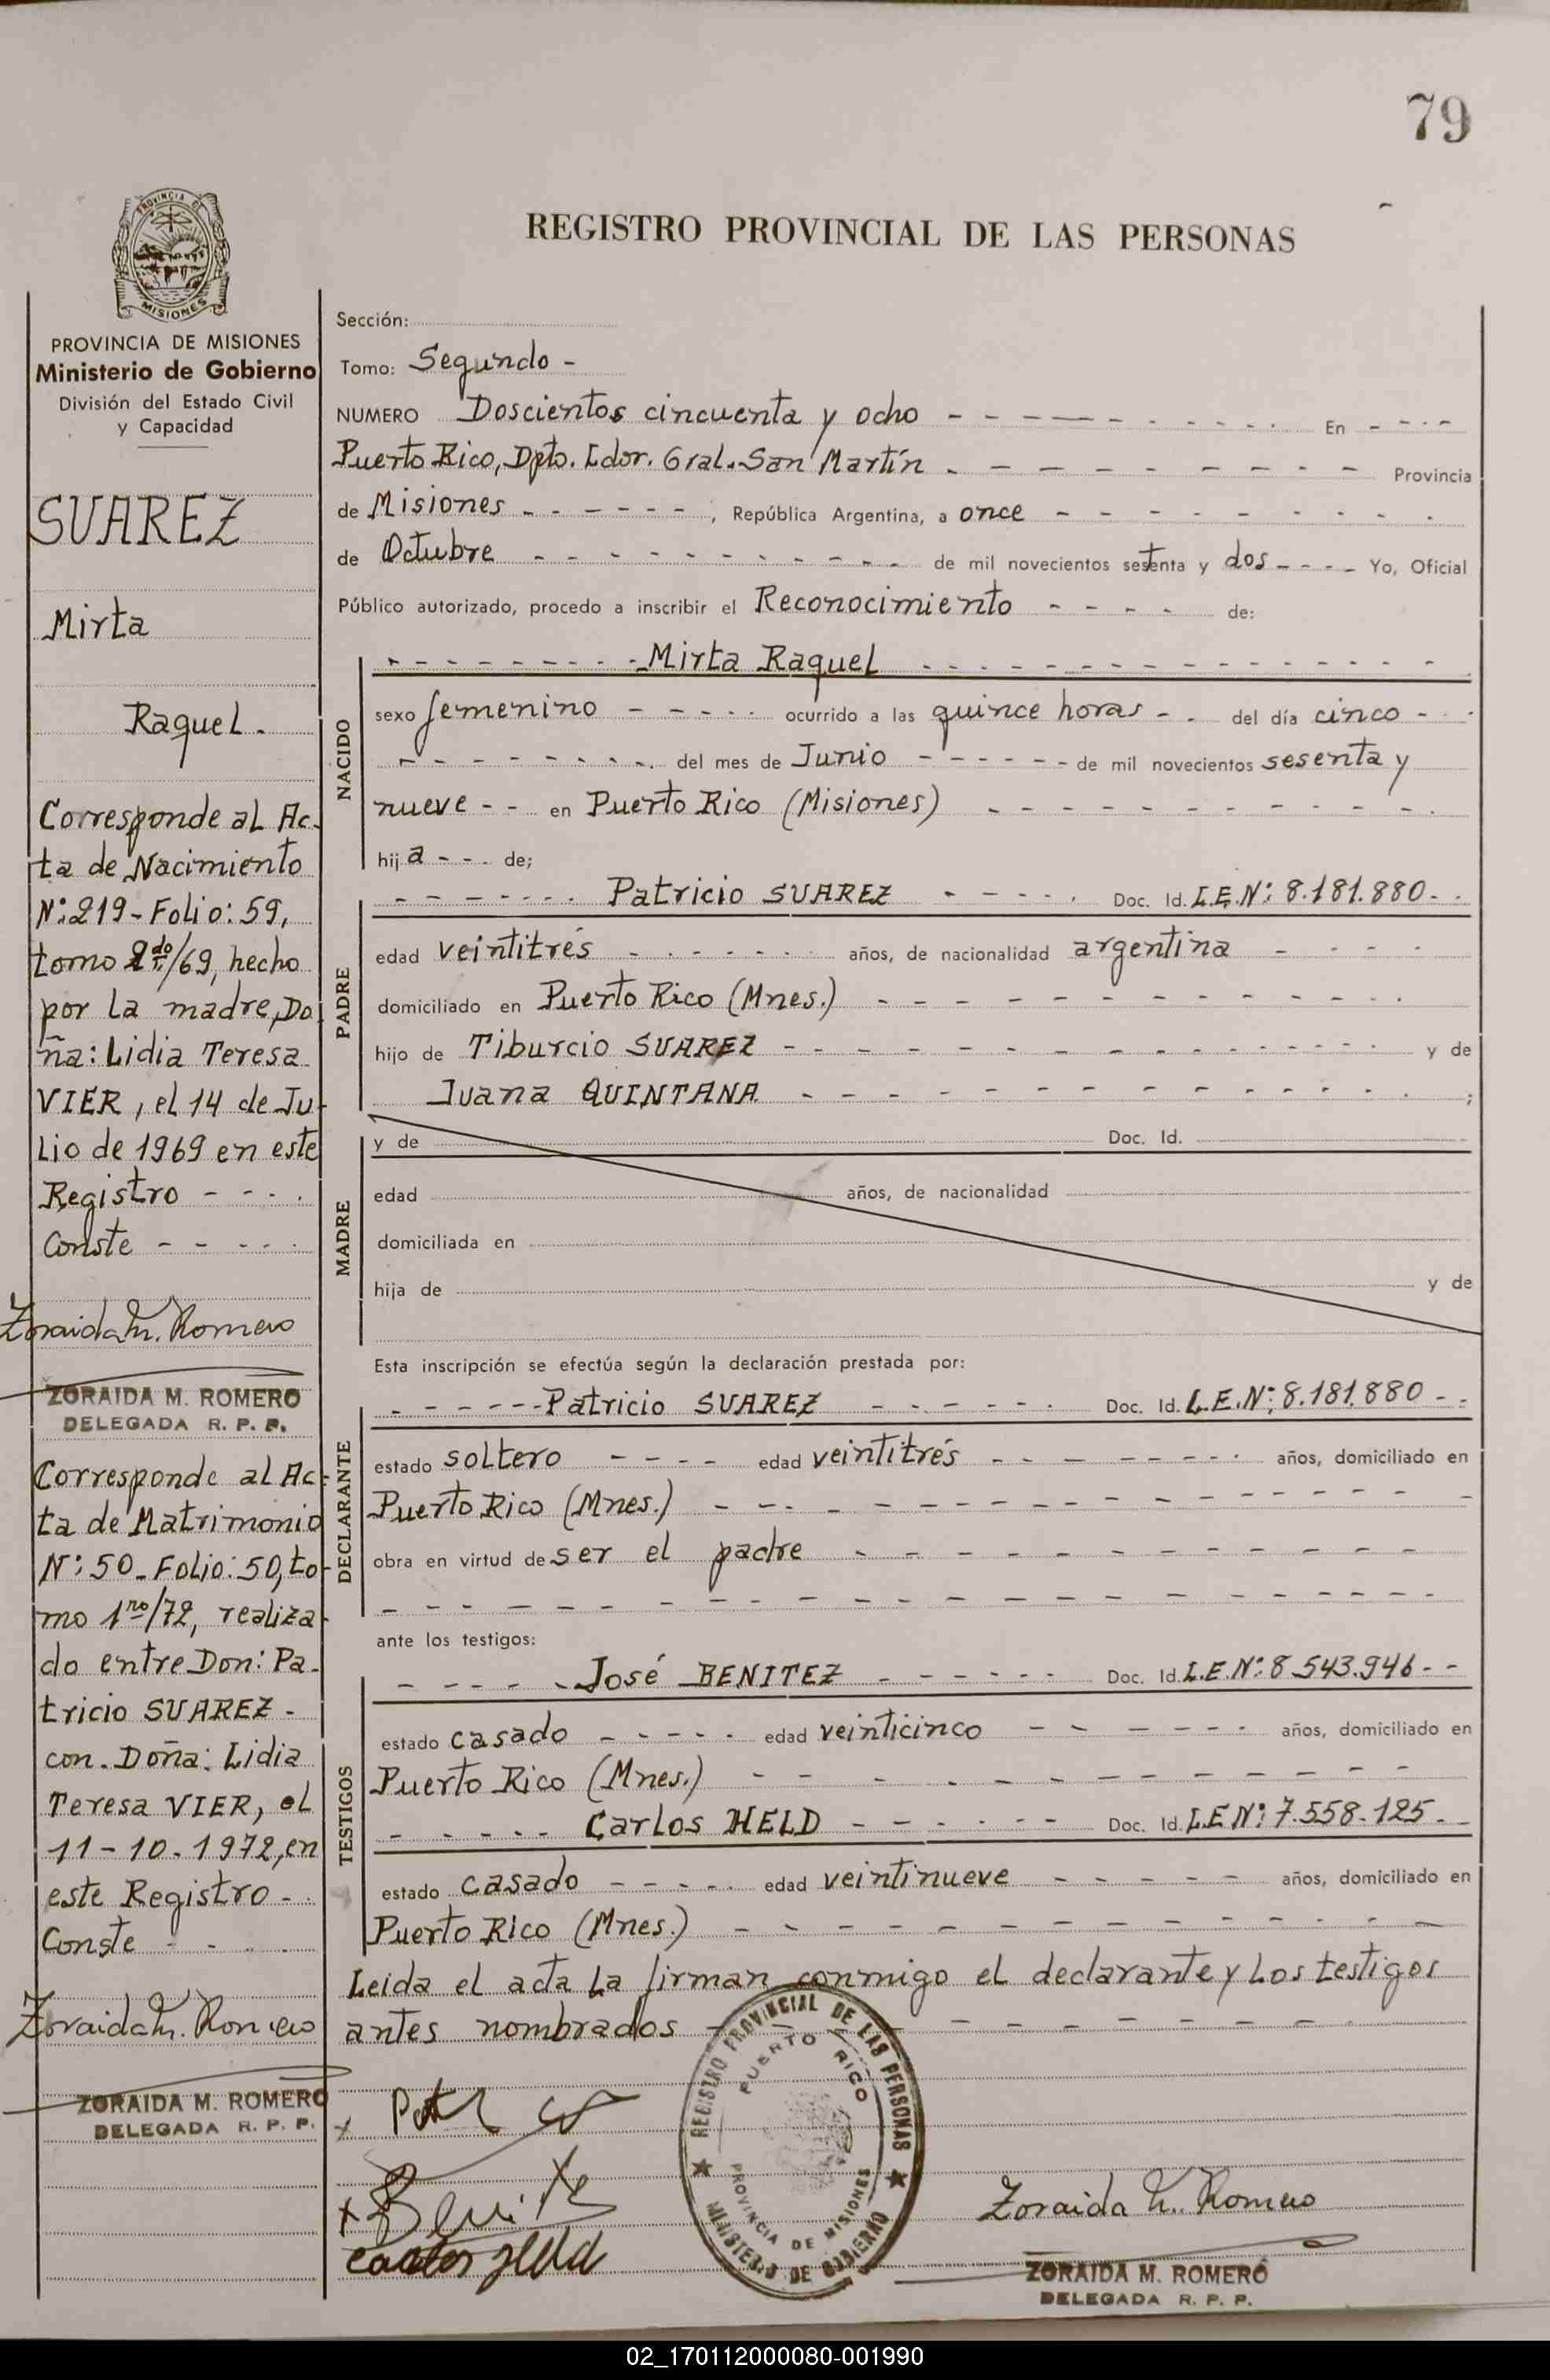 79
PROVINCIA DE
MISIONES
REGISTRO PROVINCIAL DE LAS PERSONAS
PROVINCIA DE MISIONES
Ministerio de Gobierno
División del Estado Civil
y Capacidad
SUAREZ
Mirta
Raquel.
Corresponde al Ac-
ta de Nacimiento
Nº: 219 - Folio: 59,
tomo 2do/69, hecho
por la madre, Do
ña: Lidia Teresa
VIER, el 14 de Ju-
lio de 1969 en este
Registro - - - .
Conste - - - - -
Zoraida M. Romero
ZORAIDA M. ROMERO
DELEGADA R. P. P.
Corresponde al Ac-
ta de Matrimonio
Nº: 50 - Folio: 50, to-
mo 1ro/72, realiza-
do entre Don: Pa-
tricio SUAREZ -
con Doña: Lidia
Teresa VIER, el
11-10-1972, en
este Registro - .
Conste - - - -
Zoraida M. Romero
ZORAIDA M. ROMERO
DELEGADA R. P. P.
Sección:
Tomo: Segundo -
NUMERO Doscientos cincuenta y ocho - - - - - - - En - - - -
Puerto Rico, Dpto. Ldor. Gral. San Martín - - - - - - - - - Provincia
de Misiones - - - - - - , República Argentina, a once - - - - - - - -
de Octubre - - - - - - - - - - de mil novecientos setenta y dos - - - - Yo, Oficial
Público autorizado, procedo a inscribir el Reconocimiento - - - - de:
NACIDO
- - - - - - - - Mirta Raquel - - - - - - - - - - - -
sexo femenino - - - - - ocurrido a las quince horas - - del día cinco - -
- - - - - - - - - del mes de Junio - - - - - - de mil novecientos sesenta y
nueve - - en Puerto Rico (Misiones) - - - - - - - - - -
hija - - - de;
PADRE
- - - - - - - Patricio SUAREZ - - - - - Doc. Id. L.E.Nº: 8.181.880 - -
edad veintitrés - - - - - - - años, de nacionalidad argentina - - - -
domiciliado en Puerto Rico (Mnes.) - - - - - - - - - - - -
hijo de Tiburcio SUAREZ - - - - - - - - - - - - - y de
Juana QUINTANA - - - - - - - - - - - - - ;
MADRE
y de Doc. Id.
edad años, de nacionalidad
domiciliada en
hija de y de
Esta inscripción se efectúa según la declaración prestada por:
DECLARANTE
- - - - - - Patricio SUAREZ - - - - - - Doc. Id. L.E.Nº: 8.181.880 - -
estado soltero - - - - edad veintitrés - - - - - - - - años, domiciliado en
Puerto Rico (Mnes.) - - - - - - - - - - - - - - - -
obra en virtud de ser el padre - - - - - - - - - - - - -
- - - - - - - - - - - - - - - - - - - - - -
ante los testigos:
TESTIGOS
- - - - - José BENITEZ - - - - - - Doc. Id. L.E.Nº: 8.543.946 - -
estado casado - - - - - edad veinticinco - - - - - - - años, domiciliado en
Puerto Rico (Mnes.) - - - - - - - - - - - - - -
- - - - - Carlos HELD - - - - - - Doc. Id. L.E.Nº: 7.558.125 - -
estado casado - - - - - edad veintinueve - - - - - - años, domiciliado en
Puerto Rico (Mnes.) - - - - - - - - - - - - - - -
Leida el acta la firman conmigo el declarante y los testigos
antes nombrados - - - - - - - - - -
REGISTRO PROVINCIAL DE LAS PERSONAS
PUERTO RICO
PROVINCIA DE MISIONES
MINISTERIO DE GOBIERNO
Zoraida M. Romero
ZORAIDA M. ROMERO
DELEGADA R. P. P.
02_170112000080-001990